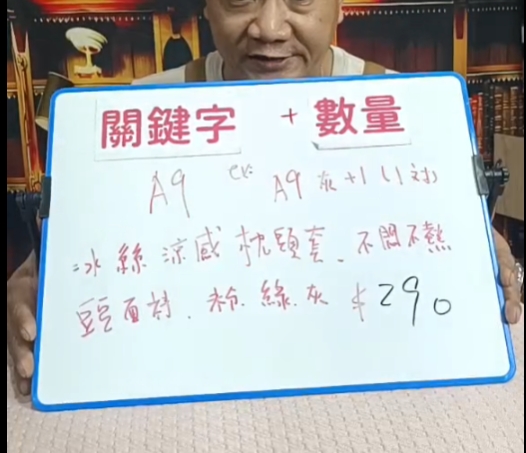 關鍵字 + 數量
A9 ex: A9灰+1 (1對)
冰絲涼感枕頭套、不悶不熱
頭面對、粉.綠.灰 $290